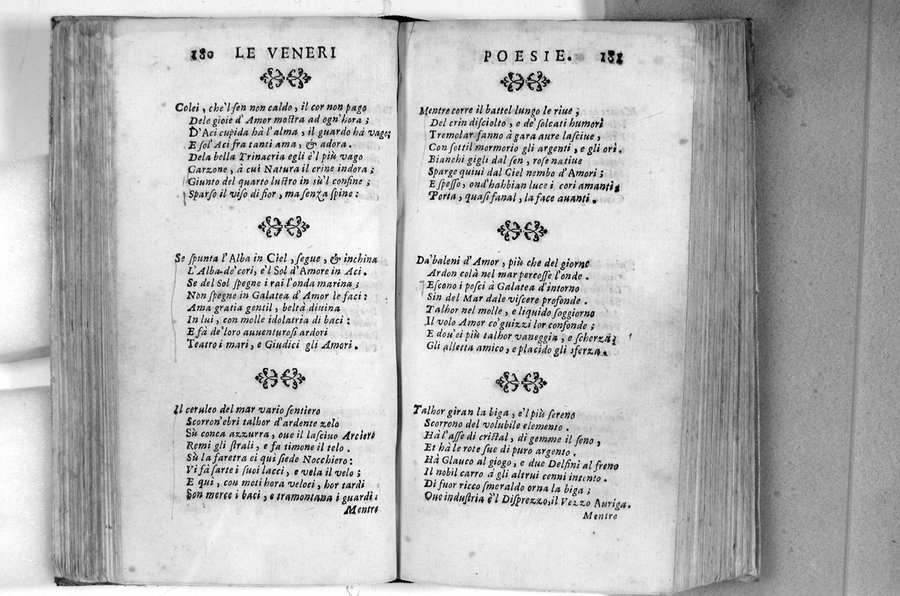 180 LE VENERI
Colei, che'l sen non caldo, il cor non pago
Dele gioie d'Amor mostra ad ogn'hora;
D'Aci cupida hà l'alma, il guardo hà vago;
E sol'Aci fra tanti ama, & adora.
Dela bella Trinacria egli è'l più vago
Garzone, à cui Natura il crine indora;
Giunto del quarto lustro in sù'l confine;
Sparso il viso di fior, ma senza spine:
Se spunta l'Alba in Ciel, segue, & inchina
L'Alba de' cori, e'l Sol d'Amore in Aci.
Se del Sol spegne i rai l'onda marina;
Non spegne in Galatea d'Amor le faci:
Ama gratia gentil, beltà diuina
In lui, con molle idolatria di baci:
E fà de'loro auuenturosi ardori
Teatro i mari, e Giudici gli Amori.
Il ceruleo del mar vario sentiero
Scorron'ebri talhor d'ardente zelo
Sù conca azzurra, oue il lasciuo Arciero
Remi gli strali, e fa timone il telo.
Sù la faretra ei qui siede Nocchiero:
Vi fà sarte i suoi lacci, e vela il velo;
E qui, con moti hora veloci, hor tardi
Son merce i baci, e tramontana i guardi:
Mentre
POESIE. 181
Mentre corre il battel lungo le riue;
Del crin disciolto, e de' solcati humori
Tremolar fanno à gara aure lasciue,
Con sottil mormorio gli argenti, e gli ori.
Bianchi gigli dal sen, rose natiue
Sparge quiui dal Ciel nembo d'Amori;
E spesso, ond'habbian luce i cori amanti,
Porta, quasi fanal, la face auanti.
Da'baleni d'Amor, più che del giorno
Ardon colà nel mar percosse l'onde.
Escono i pesci à Galatea d'intorno
Sin del Mar dale viscere profonde.
Talhor nel molle, e liquido soggiorno
Il volo Amor co' guizzi lor confonde;
E dou'ei più talhor vaneggia, e scherza;
Gli alletta amico, e placido gli sferza.
Talhor giran la biga, e'l più sereno
Scorrono del volubile elemento.
Hà l'asse di cristal, di gemme il seno,
Et hà le rote sue di puro argento.
Hà Glauco al giogo, e due Delfini al freno
Il nobil carro à gli altrui cenni intento.
Di fuor ricco smeraldo orna la biga;
Oue industria è'l Disprezzo, il Vezzo Auriga.
Mentre